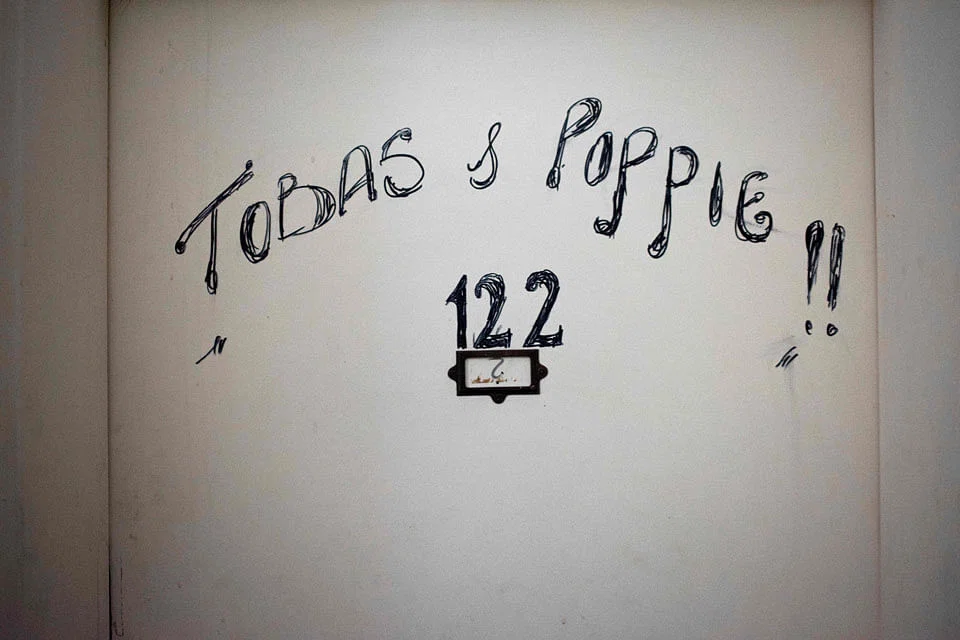 TOBAS & POPPIE !!
122
2